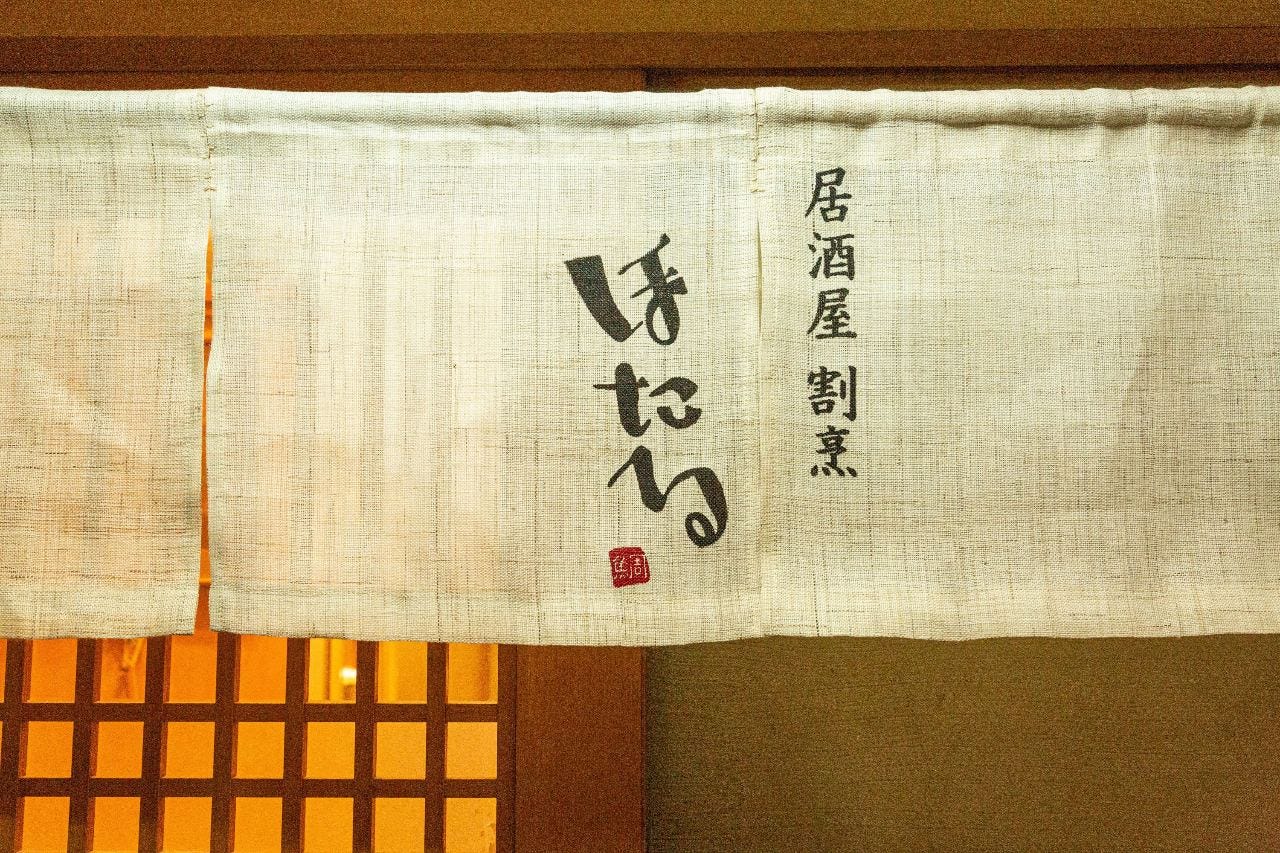 居酒屋 割烹
ほたる
鯛